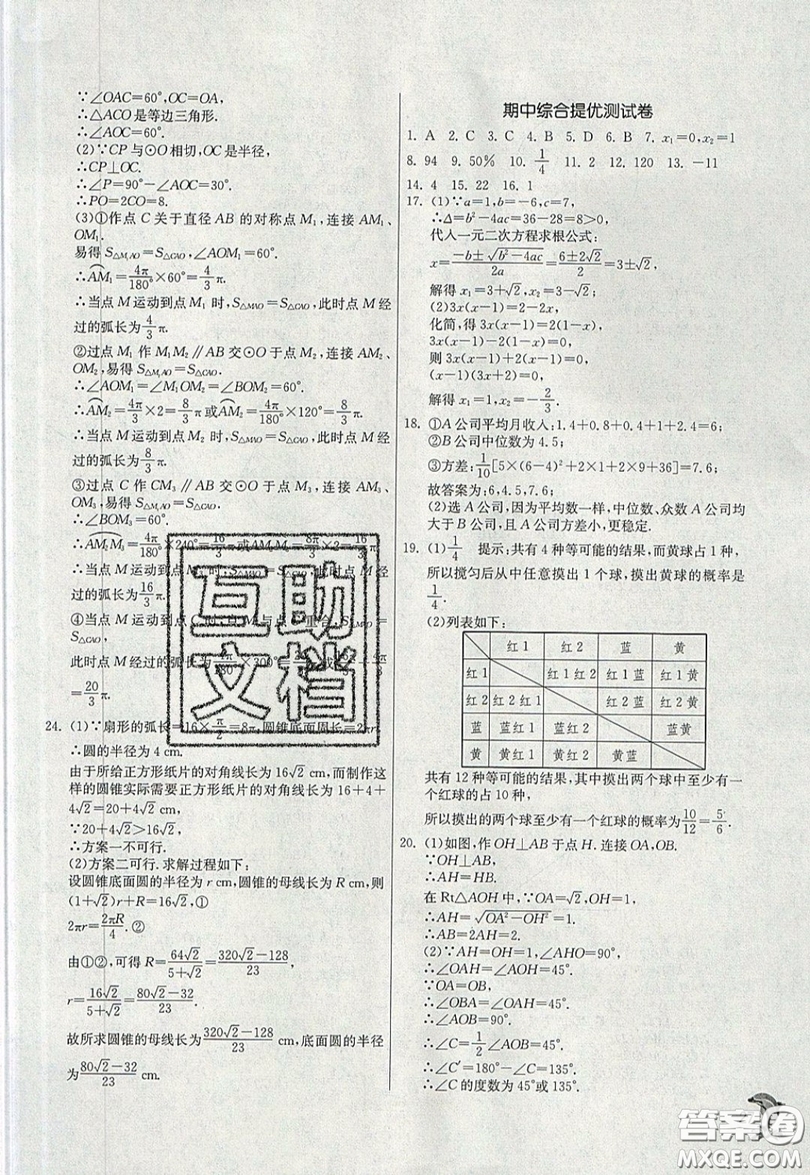 ∵∠OAC=60°,OC=OA,
∴△ACO是等边三角形.
∴∠AOC=60°.
(2)∵CP与⊙O相切,OC是半径,
∴CP⊥OC.
∴∠P=90°−∠AOC=30°.
∴PO=2CO=8.
(3)①作点C关于直径AB的对称点M₁,连接AM₁、
OM₁.
易得S△M₁AO=S△CAO,∠AOM₁=60°.
∴AM₁=4π/180°×60°=4/3π.
∴当点M运动到点M₁时,S△MAO=S△CAO,此时点M经
过的弧长为4/3π.
②过点M₁作M₁M₂∥AB交⊙O于点M₂,连接AM₂、
OM₂,易得S△M₂AO=S△CAO.
∴∠AOM₁=∠M₁OM₂=∠BOM₂=60°.
∴AM₂=4π/3×2=8/3π或AM₂=4π/180°×120°=8/3π.
∴当点M运动到点M₂时,S△MAO=S△CAO,此时点M经
过的弧长为8/3π.
③过点C作CM₃∥AB交⊙O于点M₃,连接AM₃、
OM₃,易得S△M₃AO=S△CAO.
∴∠BOM₃=60°.
∴AM₂M₃=4π/180°×240°=16/3π或
∴当点M运动到点M₃时,S△MAO=S△CAO,此时点M经
过的弧长为16/3π.
④当点M运动到点C时,点M与点C重合,S△MAO=
S△CAO,
此时点M经过的弧长为4π/180°×300°=
=20/3π.
24. (1)∵扇形的弧长=16×π/2=8π,圆锥底面周长=2πr
∴圆的半径为4 cm.
由于所给正方形纸片的对角线长为16√2 cm,而制作这
样的圆锥实际需要正方形纸片的对角线长为16+4+
4√2=20+4√2 cm,
∵20+4√2>16√2,
∴方案一不可行.
(2)方案二可行.求解过程如下:
设圆锥底面圆的半径为r cm,圆锥的母线长为R cm,则
(1+√2)r+R=16√2,①
2πr=2πR/4.②
由①②,可得R=64√2/(5+√2)=(320√2−128)/23,
r=16√2/(5+√2)=(80√2−32)/23.
故所求圆锥的母线长为(320√2−128)/23 cm,底面圆的半径
为(80√2−32)/23 cm.
期中综合提优测试卷
1. A 2. C 3. C 4. B 5. D 6. B 7. x₁=0,x₂=1
8. 94 9. 50% 10. 1/4 11. 2 12. 120 13. −11
14. 4 15. 22 16. 1
17. (1)∵a=1,b=−6,c=7,
∴Δ=b²−4ac=36−28=8>0,
代入一元二次方程求根公式:
x=(−b±√(b²−4ac))/2a=(6±2√2)/2=3±√2,
解得x₁=3+√2,x₂=3−√2;
(2)3x(x−1)=2−2x,
化简,得3x(x−1)=2(1−x),
3x(x−1)−2(1−x)=0,
则3x(x−1)+2(x−1)=0,
(x−1)(3x+2)=0,
解得x₁=1,x₂=−2/3.
18. ①A公司平均月收入:1.4+0.8+0.4+1+2.4=6;
②B公司中位数为4.5;
③方差:1/10[5×(6−4)²+2×1+2×9+36]=7.6;
故答案为:6,4.5,7.6;
(2)选A公司,因为平均数一样,中位数、众数A公司均
大于B公司,且A公司方差小,更稳定.
19. (1)1/4 提示:共有4种等可能的结果,而黄球占1种,
所以搅匀后从中任意摸出1个球,摸出黄球的概率是
1/4.
(2)列表如下:
红1 红2 蓝 黄
红1 红1红2 红1蓝 红1黄
红2 红2红1 红2蓝 红2黄
蓝 蓝红1 蓝红2 蓝黄
黄 黄红1 黄红2 黄蓝
共有12种等可能的结果,其中摸出两个球中至少有一
个红球的占10种,
所以摸出的两个球至少有一个红球的概率为10/12=5/6.
20. (1)如图,作OH⊥AB于点H.连接OA,OB.
∵OH⊥AB,
∴AH=HB.
在Rt△AOH中,∵OA=√2,OH=1,
∴AH=√(OA²−OH²)=1.
∴AB=2AH=2.
(2)∵AH=OH=1,∠AHO=90°,
∴∠AOH=∠OAH=45°.
∵OA=OB,
∴∠OBA=∠OAH=45°.
∴∠AOB=90°.
∴∠C=1/2∠AOB=45°.
∴∠C′=180°−∠C=135°.
∴∠C的度数为45°或135°.
互助
文档
答案圈
MXQE.COM